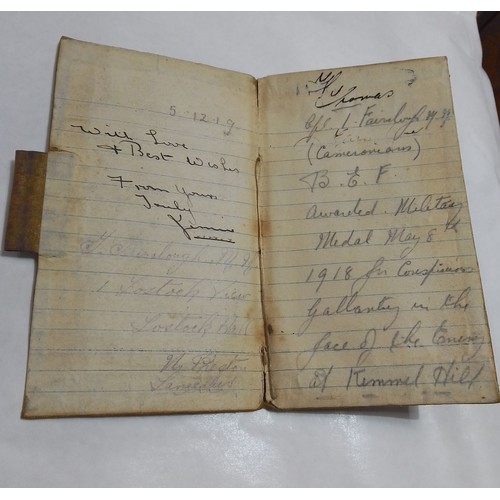 5 12 19
With Love
& Best Wishes
From Yours
Truly
T. Fairclough M.M.
1 Lostock View
Lostock Hall
Nr Preston
Lancashire
Thomas
Cpl T. Fairclough M.M.
(Cameronians)
B.E.F.
awarded Military
Medal May 8th
1918 for Conspicuous
Gallantry in the
face of the Enemy
at Kemmel Hill